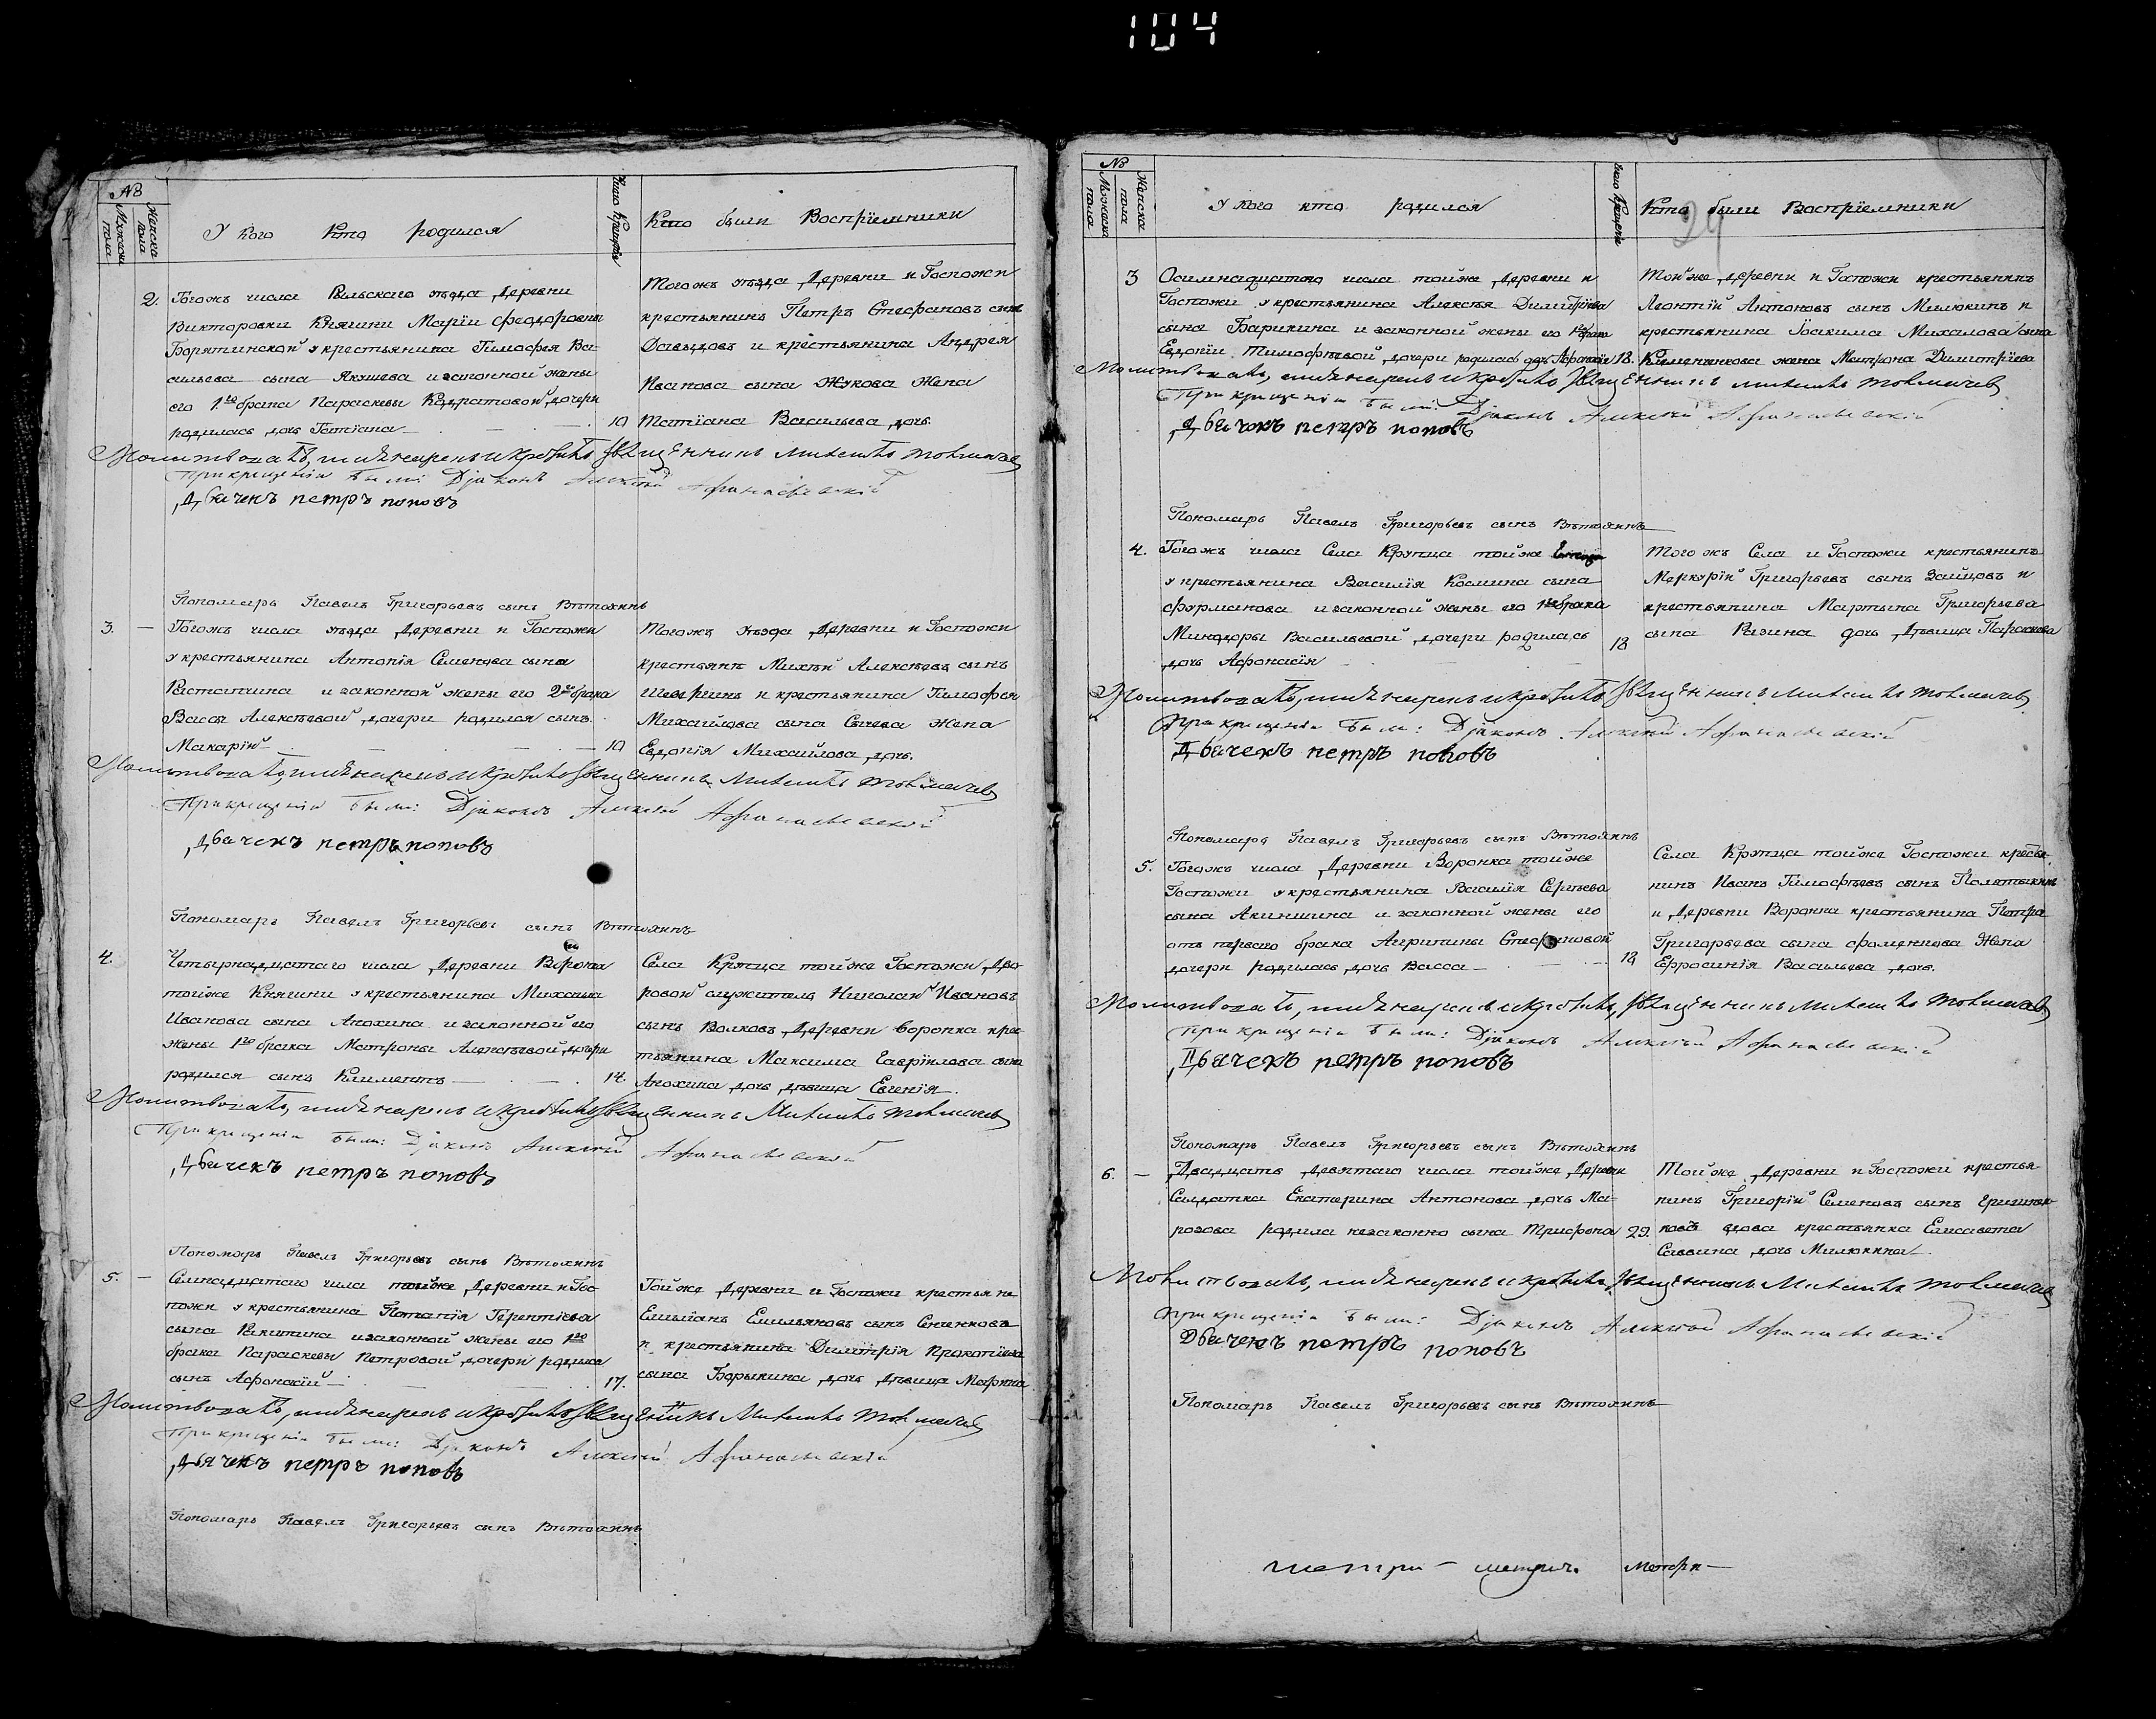 104
№
Мужеска пола
Женска пола
У кого кто родился
Число Крещенія
Кто были Воспріемники
2.
Тогожъ числа Рыльскаго уѣзда Деревни
Викторовки Княгини Маріи Феодоровны
Борятинской у крестьянина Тимофея Ва-
сильева сына Якушева и законной жены
его 1го брака Параскевы Кодратовой дочери
родилась дочь Татіана
10
Тогожъ уѣзда Деревни и Госпожи
крестьянинъ Петръ Стефановъ сынъ
Давыдовъ и крестьянина Андрея
Иванова сына Жукова жена
Татіана Васильева дочь.
Молитвовалъ, имя нарекъ и крестилъ Священникъ
При крещеніи были: Діаконъ Алексѣй Афанасьевскій
Дьячекъ петръ поповъ
Пономарь Павелъ Григорьевъ сынъ Вѣтохинъ
3.
Тогожъ числа уѣзда Деревни и Госпожи
у крестьянина Антонія Семенова сына
Растапчина и законной жены его 2го брака
Вассы Алексѣевой дочери родился сынъ
Макарій
10
Тогожъ уѣзда Деревни и Госпожи
крестьянъ Михѣй Алексѣевъ сынъ
и крестьянина Тимофея
Михайлова сына Сычева жена
Евдокія Михайлова дочь.
Молитвовалъ, имя нарекъ и крестилъ Священникъ
При крещеніи были: Діаконъ Алексѣй Афанасьевскій
Дьячекъ петръ поповъ
Пономарь Павелъ Григорьевъ сынъ Вѣтохинъ
4.
Четырнадцатаго числа Деревни Воронка
тойже Княгини у крестьянина Михаила
Иванова сына Анохина и законной его
жены 1го брака Матроны Алексѣевой дочери
родился сынъ Климентъ
14.
Села Крупца тойже Госпожи Дво-
ровой служитель Николай Ивановъ
сынъ Волковъ, Деревни Воронка крес-
тьянина Максима Гаврілова сына
Анохина дочь дѣвица Евгенія.
Молитвовалъ, имя нарекъ и крестилъ Священникъ
При крещеніи были: Діаконъ Алексѣй Афанасьевскій
Дьячекъ петръ поповъ
Пономарь Павелъ Григорьевъ сынъ Вѣтохинъ
5.
Семнадцатаго числа тойже Деревни и Гос-
пожи у крестьянина Потапія Терентіева
сына Ракитина и законной жены его 1го
брака Параскевы Петровой дочери родился
сынъ Афонасій
17.
Тойже Деревни и Госпожи крестьяне
Емиліанъ Емильяновъ сынъ Сененковъ
и крестьянина Димитрія Прокопіева
сына Борыкина дочь дѣвица Марина
Молитвовалъ, имя нарекъ и крестилъ Священникъ
При крещеніи были: Діаконъ Алексѣй Афанасьевскій
Дьячекъ петръ поповъ
Пономарь Павелъ Григорьевъ сынъ Вѣтохинъ
№
Мужеска пола
Женска пола
У кого кто родился
Число Крещенія
Кто были Воспріемники
3
Осимнадцатаго числа тойже Деревни и
Госпожи у крестьянина Алексѣя Димитріева
сына Барикина и законной жены его 1го брака
Евдокіи Тимофѣевой дочери родилась дочь Афонасія
18.
Тойже деревни и Госпожи крестьянинъ
Леонтій Антоновъ сынъ Милюкинъ и
крестьянина Іоакима Михалова сына
жена Матрона Димитріева
Молитвовалъ, имя нарекъ и крестилъ Священникъ
При крещеніи были: Діаконъ Алексѣй Афанасьевскій
Дьячокъ петръ поповъ
Пономарь Павелъ Григорьевъ сынъ Вѣтохинъ
4.
Тогожъ числа Села Крупца тойже
у крестьянина Василія Космина сына
Фурманова и законной жены его 1го брака
Минодоры Васильевой дочери родилась
дочь Афонасія
18
Того жъ Села и Госпожи крестьянинъ
Меркурій Григорьевъ сынъ Зайцовъ и
крестьянина Мартына Григорьева
сына Разина дочь Дѣвица Параскева
Молитвовалъ, имя нарекъ и крестилъ Священникъ
При крещеніи были: Діаконъ Алексѣй Афанасьевскій
Дьячекъ петръ поповъ
Пономарь Павелъ Григорьевъ сынъ Вѣтохинъ
5.
Тогожъ числа Деревни Воронка тойже
Госпожи у крестьянина Василія Сергѣева
сына Акиншина и законной жены его
отъ перваго брака Акрипины Стефановой
дочери родилась дочь Васса
18
Села Крупца тойже Госпожи кресть-
нинъ Иванъ Тимофѣевъ сынъ Полютыкинъ
и Деревни Воронка крестьянина Петра
Григорьева сына Фоменкова Жена
Ефросинія Васильева дочь.
Молитвовалъ, имя нарекъ и крестилъ, Священникъ
При крещеніи были: Діаконъ Алексѣй Афанасьевскій
Дьячекъ петръ поповъ
Пономарь Павелъ Григорьевъ сынъ Вѣтохинъ
6.
Двадцать девятаго числа тойже Деревни
Салдатка Екатерина Антонова дочь Ма-
розова родила незаконно сына Трифона
29.
Тойже Деревни и Госпожи крестья-
нинъ Григорій Семеновъ сынъ
вдова крестьянка Елисавета
Саввина дочь Милюкина.
Молитвовалъ, имя нарекъ и крестилъ Священникъ
При крещеніи были: Діаконъ Алексѣй Афанасьевскій
Дьячекъ петръ поповъ
Пономарь Павелъ Григорьевъ сынъ Вѣтохинъ